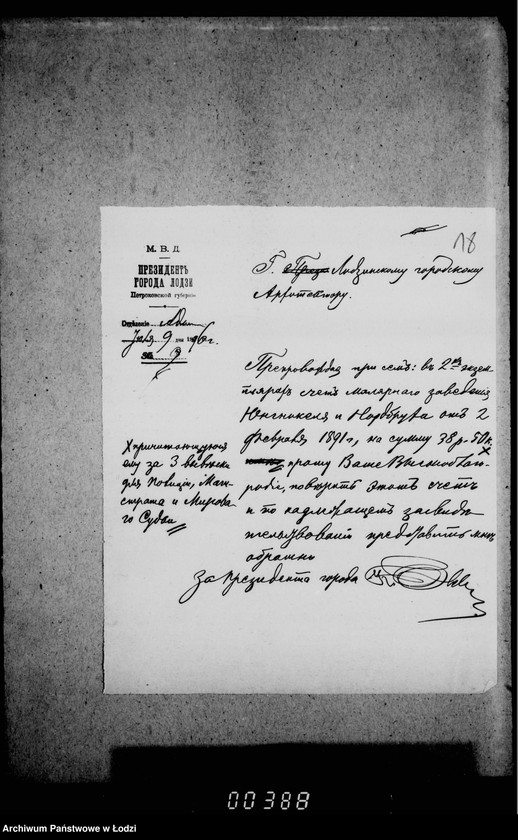 18
М. В. Д.
ПРЕЗИДЕНТЪ
ГОРОДА ЛОДЗИ
Петроковской губерніи
Отдѣленіе
9 дня 1896 г.
№ 9
Г. Лодзинскому городскому
Архитектору.
Препровождая при семъ: въ 2хъ экзем
плярахъ счетъ малярнаго заведенія
Юнгникеля и Нордбруха отъ 2
февраля 1891 г, на сумму 38 р. 50 к.
X
прошу Ваше Высокоблаго-
родіе, повѣрить этотъ счетъ
и по надлежащемъ засвидѣ
тельствованіи представить мнѣ
обратно
X причитающуюся
ему за 3 вывѣски
для Полиціи, Маги-
страта и Мирова-
го Судьи
За Президента города
00388
Archiwum Państwowe w Łodzi